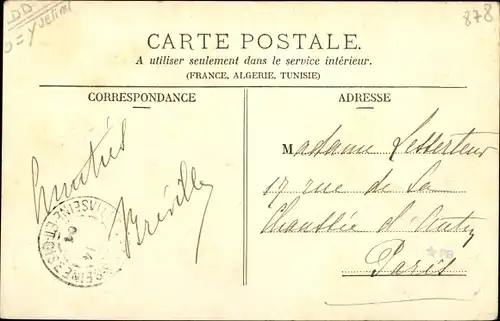 DD
878
CARTE POSTALE.
A utiliser seulement dans le service intérieur.
(FRANCE, ALGERIE, TUNISIE)
CORRESPONDANCE
ADRESSE
Amitiés
Bréville
Madame Lesserteur
17 rue de la
Chaussée d'Antin
Paris